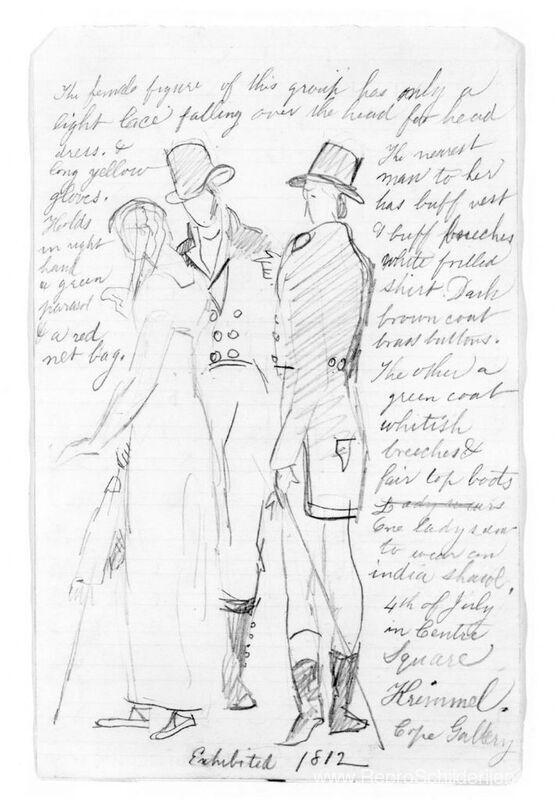 The female figure of this group has only a
light lace falling over the head for head
dress. &
long yellow
gloves.
Holds
in right
hand
a green
parasol
& a red
net bag.
The nearest
man to her
has buff vest
& buff breeches
white frilled
shirt. Dark
brown coat
brass buttons.
The other a
green coat
whitish
breeches &
fair top boots
Lady wears
One lady saw
to wear an
india shawl
4th of July
in Centre
Square
Krimmel.
Cope Gallery
Exhibited 1812